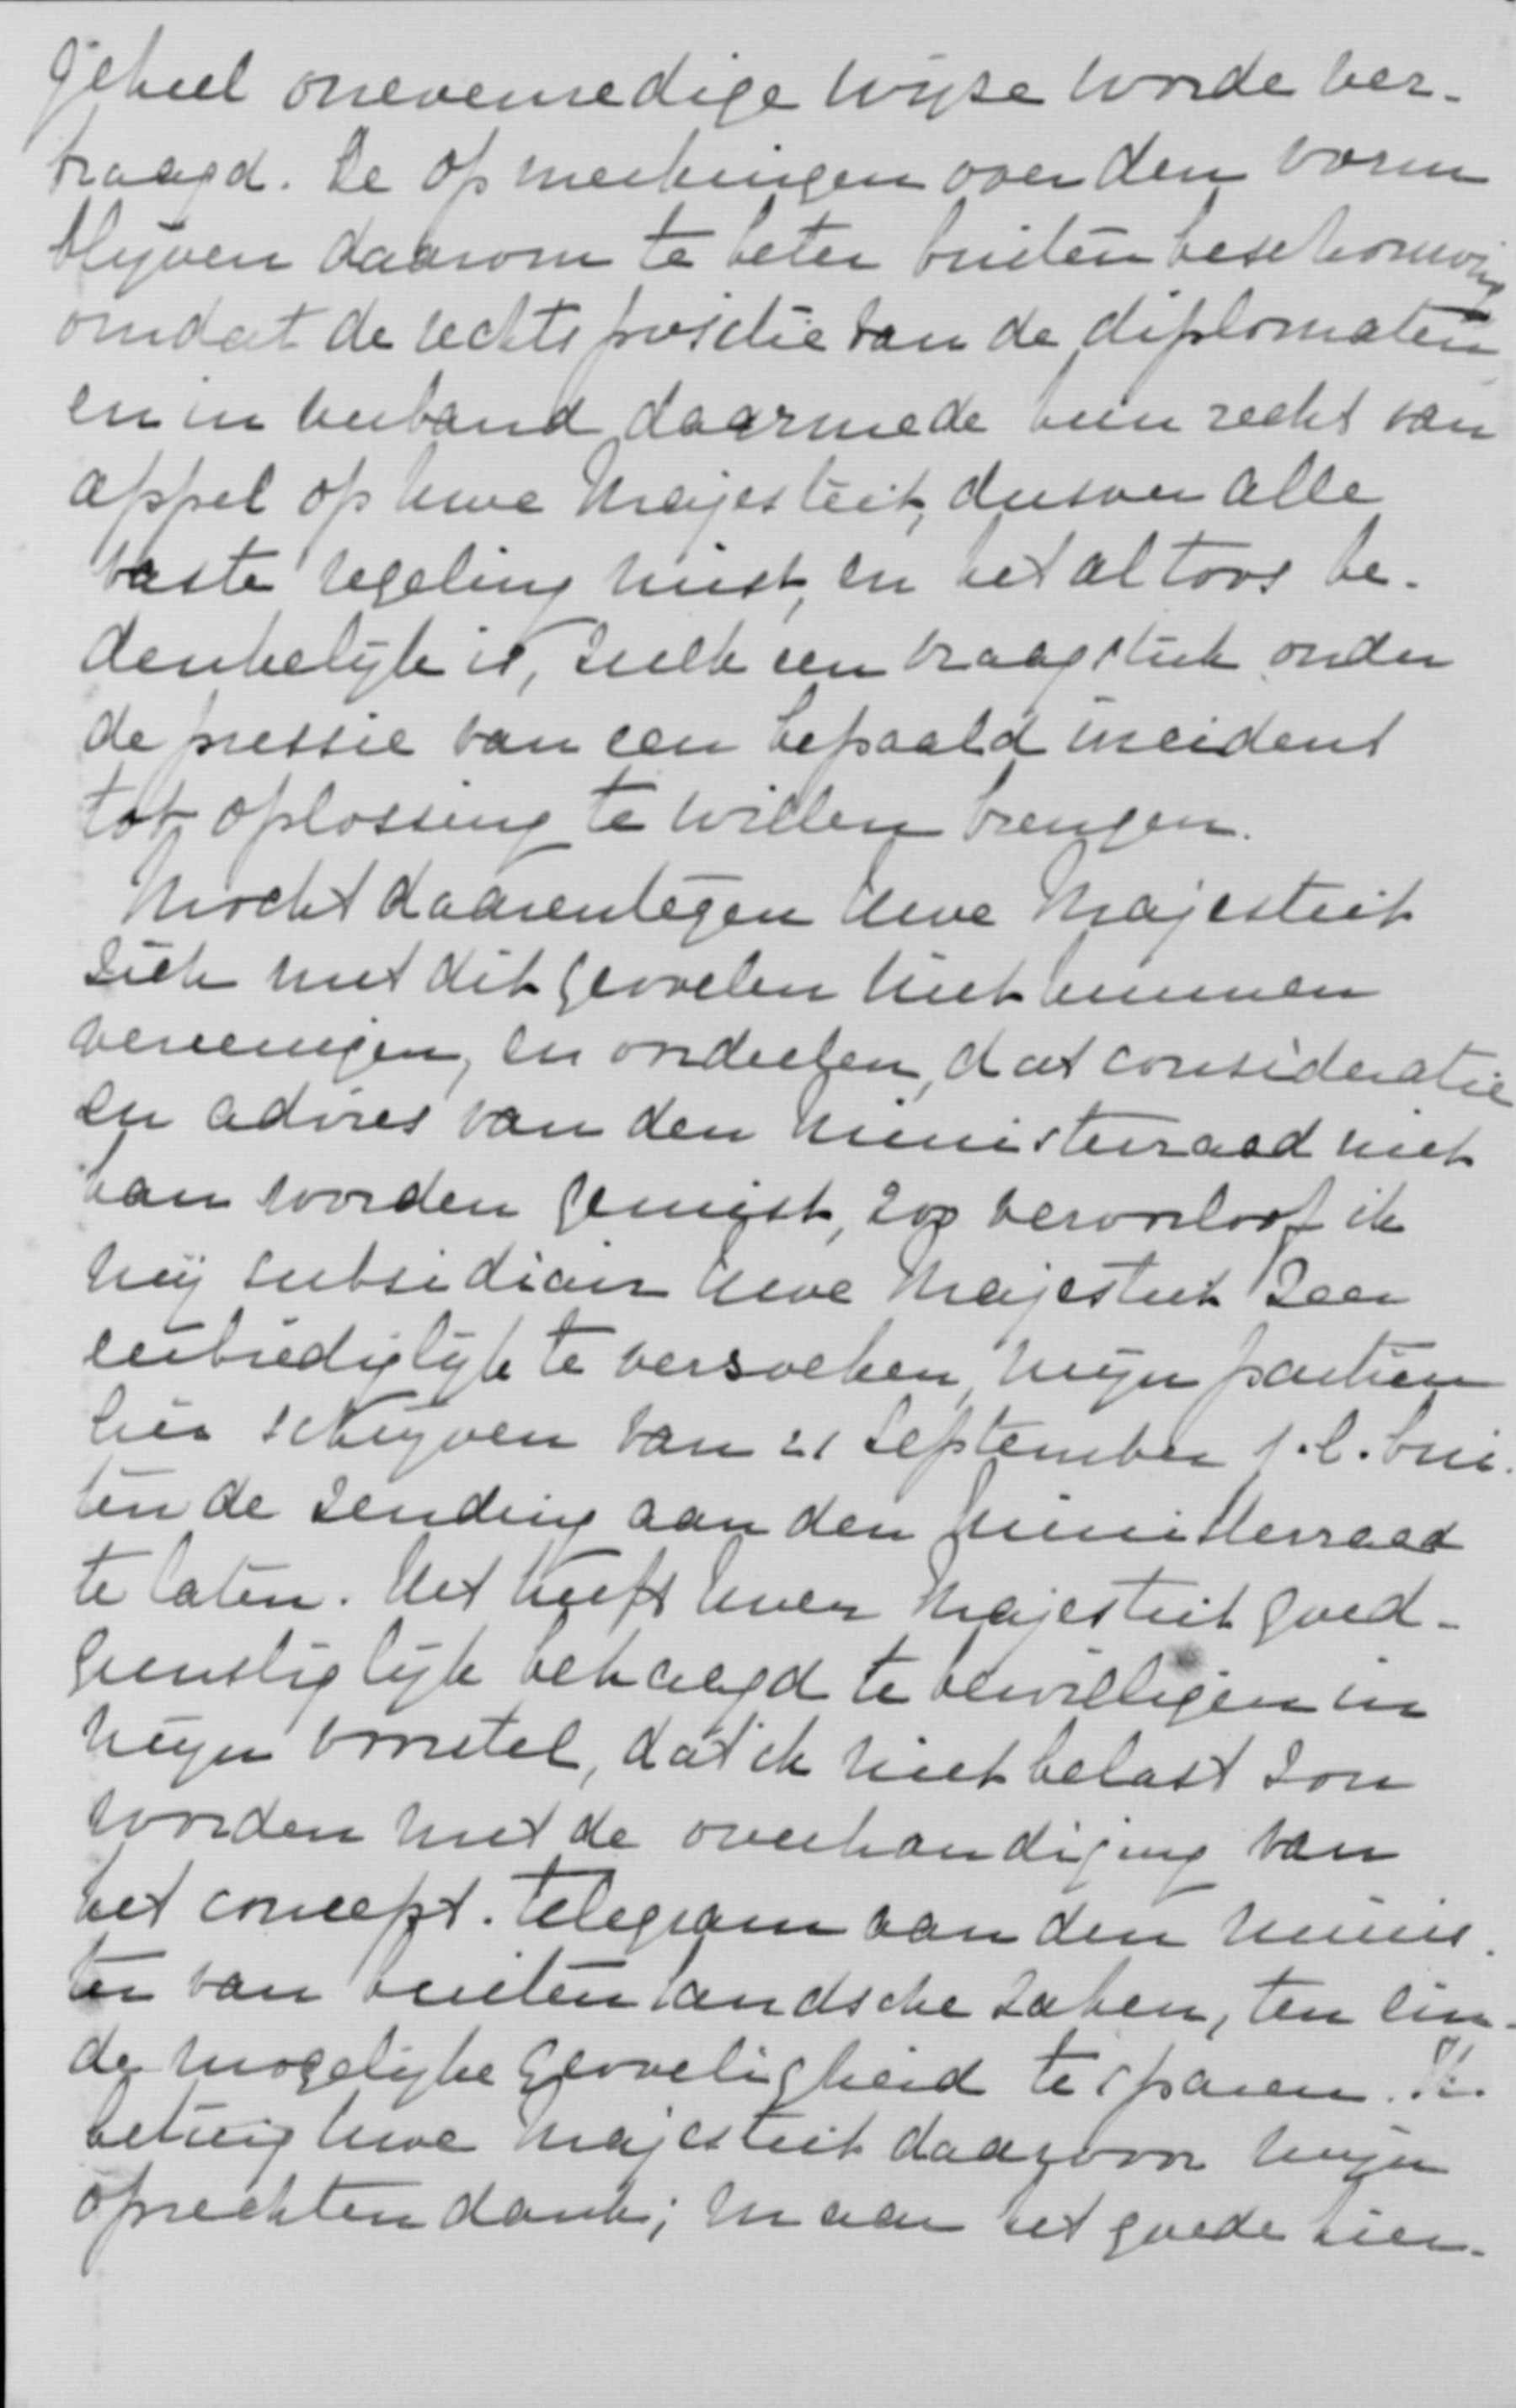 geheel onevenredige wijze worde ver-
traagd. De opmerkingen over den vorm
blijven daarom te beter buiten beschouwing
omdat de rechtspositie van de diplomaten
en in verband daarmede hun recht van
appel op Uwe Majesteit, dusver alle
vaste regeling mist, en het altoos be-
denkelijk is, zulk een vraagstuk onder
de pressie van een bepaald incident
tot oplossing te willen brengen.
Mocht daarentegen Uwe Majesteit
zich met dit gevoelen niet kunnen
vereenigen, en oordeelen, dat consideratie
en advies van den Ministerraad niet
kan worden gemist, zoo veroorloof ik
mij subsidiair Uwe Majesteit zeer
eerbiediglijk te verzoeken, mijn particu-
lier schrijven van 21 September j.l. bui-
ten de zending aan den Ministerraad
te laten. Het heeft Uwer Majesteit goed-
gunstiglijk behaagd te bewilligen in
mijn voorstel, dat ik niet belast zou
worden met de overhandiging van
het concept-telegram aan den Minis-
ter van Buitenlandsche Zaken, ten ein-
de mogelijke gevoeligheid te sparen. Ik
betuig Uwe Majesteit daarvoor mijn
oprechten dank; maar het goede hier-